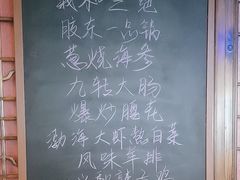 胶东一品锅
葱烧海参
九转大肠
爆炒腰花
渤海大虾熬白菜
风味羊排